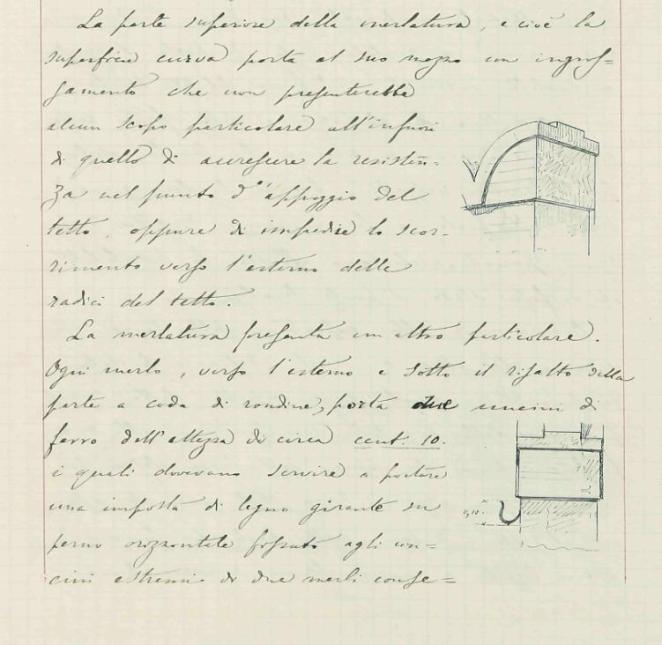 La parte superiore della merlatura, e cioè la
superficie curva porta al suo mezzo un ingros=
samento che non presenterebbe
alcun scopo particolare all'infuori
di quello di accrescere la resisten=
za nel punto d'appoggio del
tetto, oppure di impedire lo scor-
rimento verso l'esterno delle
radici del tetto.
La merlatura presenta un altro particolare.
Ogni merlo, verso l'esterno e sotto il risalto della
parte a coda di rondine, porta due uncini di
ferro dell'altezza di circa cent. 10.
i quali dovevano servire a portare
una imposta di legno girante su
0,10
perno orizzontale fissato agli un=
cini estremi di due merli conse=